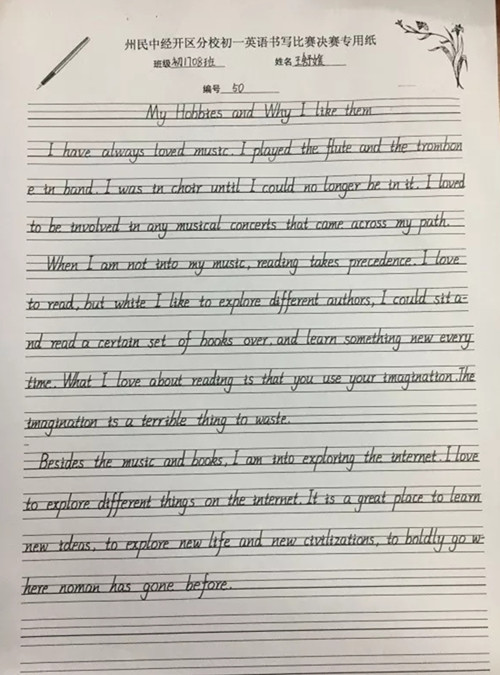 州民中经开区分校初一英语书写比赛决赛专用纸
班级 初1708班 姓名 王舒雅
编号 50
My Hobbies and Why I like them
I have always loved music. I played the flute and the trombon
e in band. I was in choir until I could no longer be in it. I loved
to be involved in any musical concerts that came across my path.
When I am not into my music, reading takes precedence. I love
to read, but white I like to explore different authors, I could sit a-
nd read a certain set of books over. and learn something new every
time. What I love about reading is that you use your imagination. The
imagination is a terrible thing to waste.
Besides the music and books, I am into exploring the internet. I love
to explore different things on the internet. It is a great place to learn
new ideas, to explore new life and new civilizations, to boldly go w-
here noman has gone before.